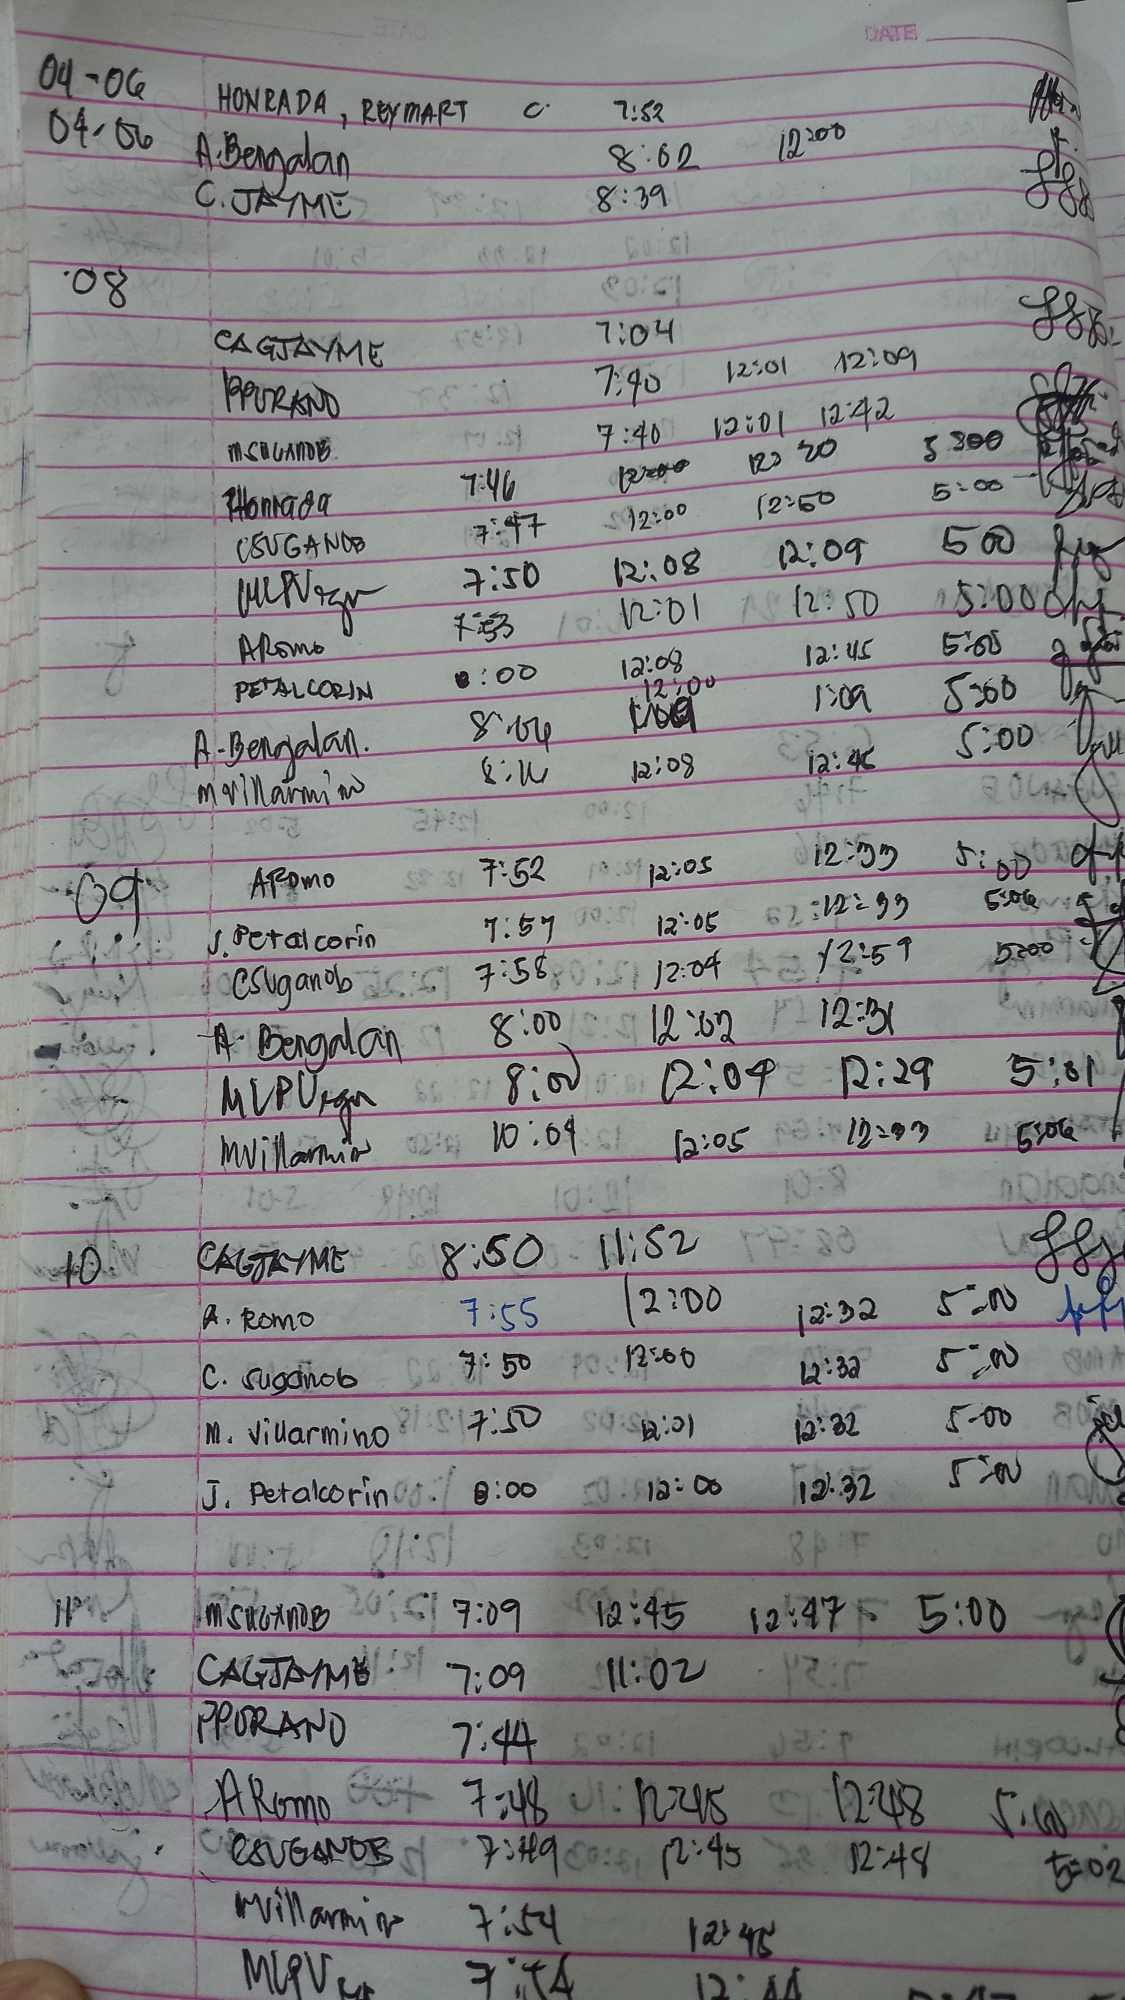 DATE
04-06 HONRADA, REYMART C. 7:52
04-06 A.Bengalan 8:02 12:00
C. JAYME 8:39
08
CAGJAYME 7:04
PPURANO 7:40 12:01 12:09
MSUGANOB 7:40 12:01 12:42
RHonrada 7:46 12:00 12:20 5:00
CSUGANOB 7:47 12:00 12:50 5:00
MLPV 7:50 12:08 12:09 500
ARomo 7:53 12:01 12:50 5:00
PETALCORIN 8:00 12:08 12:45 5:00
A.Bengalan. 12:00 1:09 5:00
mvillarmino 12:08 12:45 5:00
09 ARomo 7:52 12:05 12:33 5:00
J. Petalcorin 7:57 12:05 12:33 5:06
CSuganob 7:58 12:04 12:59 5:00
A. Bengalan 8:00 12:02 12:31
MLPV 8:00 12:04 12:29 5:01
Mvillarmin 10:04 12:05 12:33 5:06
10 CAGJAYME 8:50 11:52
A. Romo 7:55 12:00 12:32 5:00
C. Suganob 7:50 12:00 12:32 5:00
M. Villarmino 7:50 12:01 12:32 5:00
J. Petalcorin 8:00 12:00 12:32 5:00
11 MSUGANOB 7:09 12:45 12:47 5:00
CAGJAYME 7:09 11:02
PPURANO 7:44
ARomo 7:48 12:45 12:48 5:00
CSUGANOB 7:49 12:45 12:48 5:02
mvillarmin 7:54 12:45
MLPV 12:44